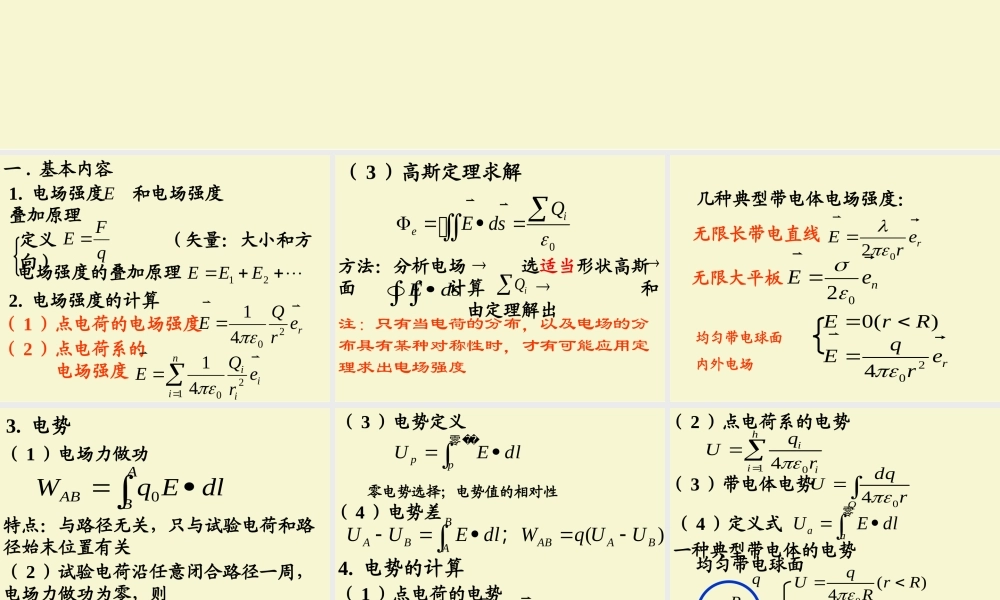 一 . 基本内容
1. 电场强度 E 和电场强度
叠加原理
定义 E = F/q （矢量：大小和方
向）
电场强度的叠加原理 E = E1 + E2 + ⋯
2. 电场强度的计算
（ 1 ）点电荷的电场强度 E = 1/4πε0 Q/r² er
（ 2 ）点电荷系的
电场强度 E = ∑ i=1 n 1/4πε0 Qi/ri² ei
（ 3 ）高斯定理求解
Φe = ∯ E • ds = ∑Qi/ε0
方法：分析电场 → 选适当形状高斯 →
面 计算 ∮∮ E • ds 和 ∑Qi →
由定理解出
注：只有当电荷的分布，以及电场的分
布具有某种对称性时，才有可能应用定
理求出电场强度
几种典型带电体电场强度：
无限长带电直线 E = λ/2πε0r er
无限大平板 E = σ/2ε0 en
均匀带电球面
内外电场
E = 0(r < R)
E = q/4πε0r² er
3. 电势
（ 1 ）电场力做功
WAB = ∫ A B q0 E • dl
特点：与路径无关，只与试验电荷和路
径始末位置有关
（ 2 ）试验电荷沿任意闭合路径一周，
电场力做功为零，则
（ 3 ）电势定义
Up = ∫ p 零 E • dl
零电势选择；电势值的相对性
（ 4 ）电势差
UA − UB = ∫ A B E • dl; WAB = q(UA − UB)
4. 电势的计算
（ 1 ）点电荷的电势
（ 2 ）点电荷系的电势
U = ∑ i=1 h qi/4πε0ri
（ 3 ）带电体电势 U = ∫ Q dq/4πε0r
（ 4 ）定义式 Ua = ∫ a 零 E • dl
一种典型带电体的电势
均匀带电球面
q
R
U = q/4πε0R (r < R)